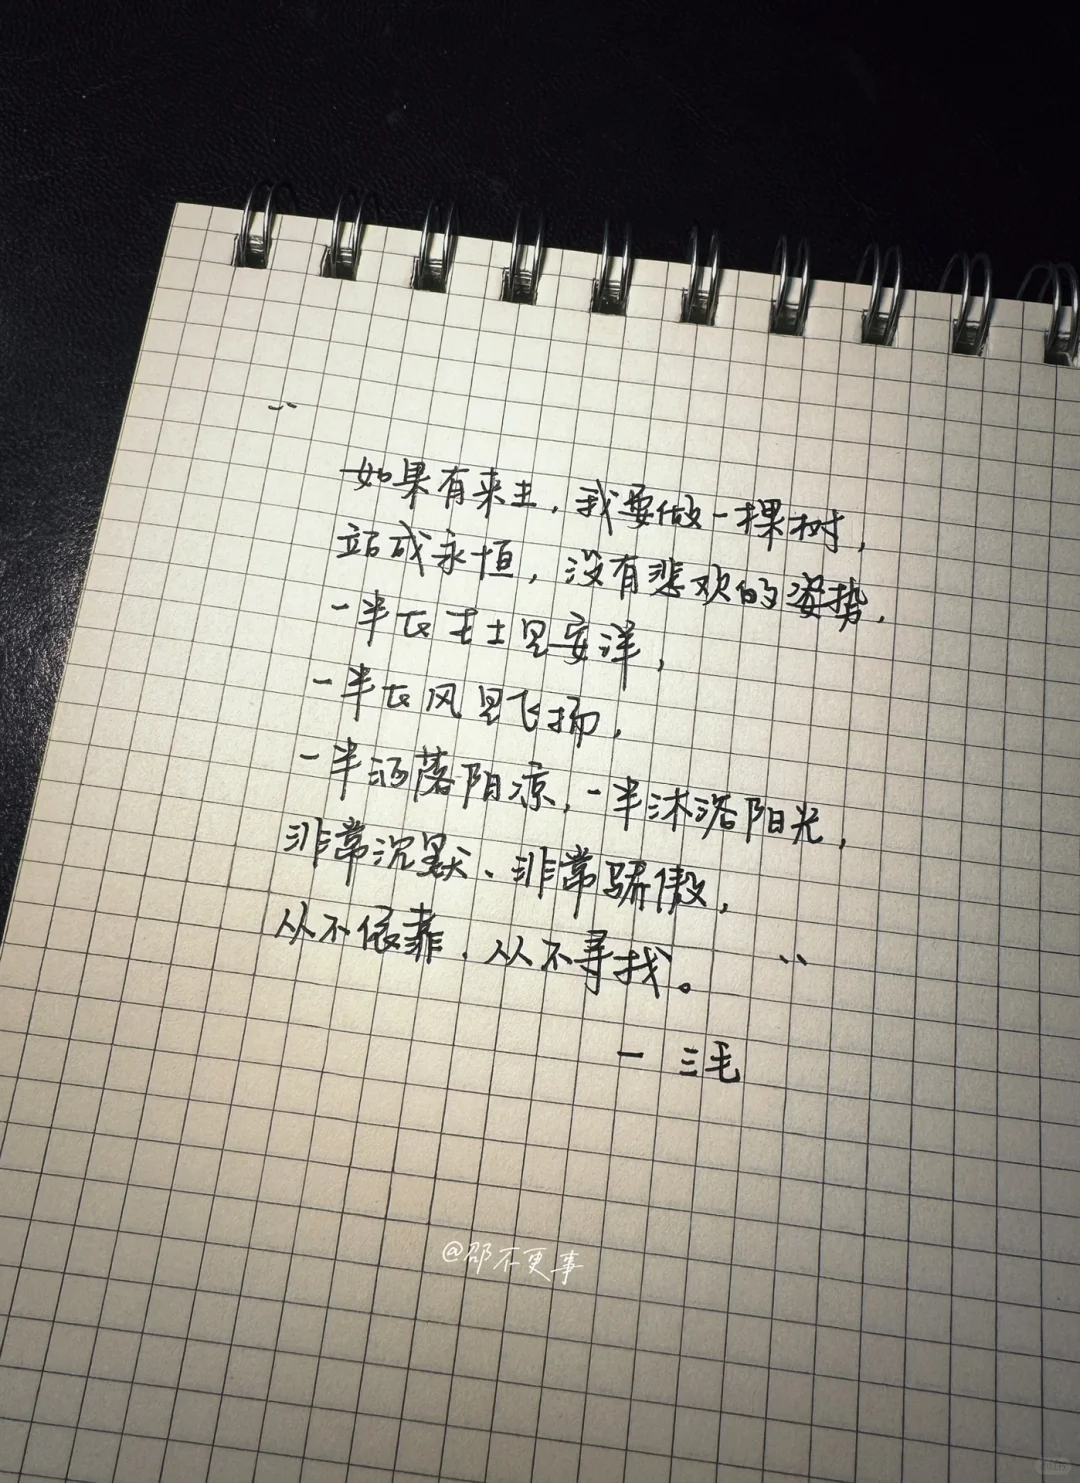 “
如果有来生，我要做一棵树，
站成永恒，没有悲欢的姿势，
一半在土里安详，
一半在风里飞扬，
一半洒落阴凉，一半沐浴阳光，
非常沉默、非常骄傲，
从不依靠，从不寻找。 ”
— 三毛
@邵不更事